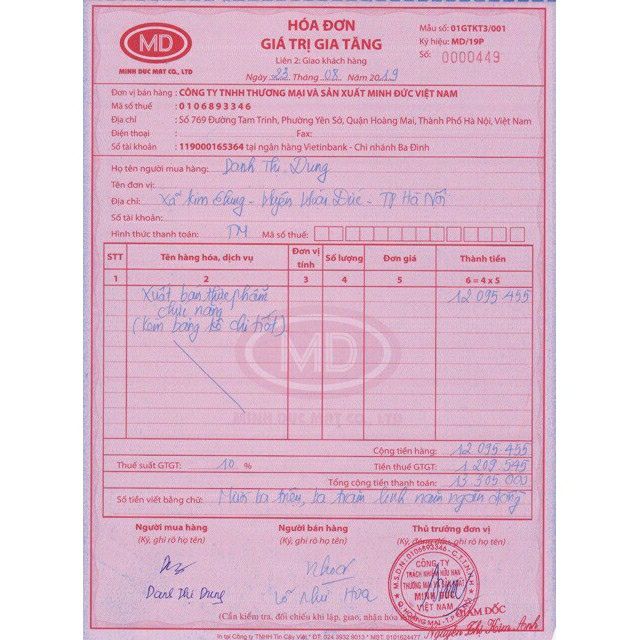 MD
MINH DUC MAT CO., LTD
HÓA ĐƠN
GIÁ TRỊ GIA TĂNG
Liên 2: Giao khách hàng
Ngày 23 Tháng 08 Năm 2019
Mẫu số: 01GTKT3/001
Ký hiệu: MD/19P
Số: 0000449
Đơn vị bán hàng : CÔNG TY TNHH THƯƠNG MẠI VÀ SẢN XUẤT MINH ĐỨC VIỆT NAM
Mã số thuế : 0106893346
Địa chỉ : Số 769 Đường Tam Trinh, Phường Yên Sở, Quận Hoàng Mai, Thành Phố Hà Nội, Việt Nam
Điện thoại : Fax:
Số tài khoản : 119000165364 tại ngân hàng Vietinbank - Chi nhánh Ba Đình
Họ tên người mua hàng: Danh Thị Dung
Tên đơn vị:
Địa chỉ: Xã Kim Chung - Huyện Hoài Đức - TP Hà Nội
Số tài khoản:
Hình thức thanh toán: TM Mã số thuế:
STT Tên hàng hóa, dịch vụ Đơn vị tính Số lượng Đơn giá Thành tiền
1 2 3 4 5 6 = 4 x 5
Xuất bán thực phẩm 12 095 455
chức năng
(Kèm bảng kê chi tiết)
MD
MINH DUC MAT CO., LTD
Cộng tiền hàng: 12 095.455
Thuế suất GTGT: 10 % Tiền thuế GTGT: 1 209.545
Tổng cộng tiền thanh toán: 13 305 000
Số tiền viết bằng chữ: Mười ba triệu, ba trăm linh năm ngàn đồng
Người mua hàng Người bán hàng Thủ trưởng đơn vị
(Ký, ghi rõ họ tên) (Ký, ghi rõ họ tên) (Ký, đóng dấu, ghi rõ họ tên)
M.S.D.N: 0106893346 - C.T.T.N.H.H
CÔNG TY
TRÁCH NHIỆM HỮU HẠN
THƯƠNG MẠI VÀ SẢN XUẤT
MINH ĐỨC
VIỆT NAM
Q. HOÀNG MAI - T.P
Danh Thị Dung Võ Như Hoa
GIÁM ĐỐC
Nguyễn Thị Kim Anh
(Cần kiểm tra, đối chiếu khi lập, giao, nhận hóa
In tại Công ty TNHH Tin Cậy Việt - ĐT: 024 3932 9013 - MST: 0101624477